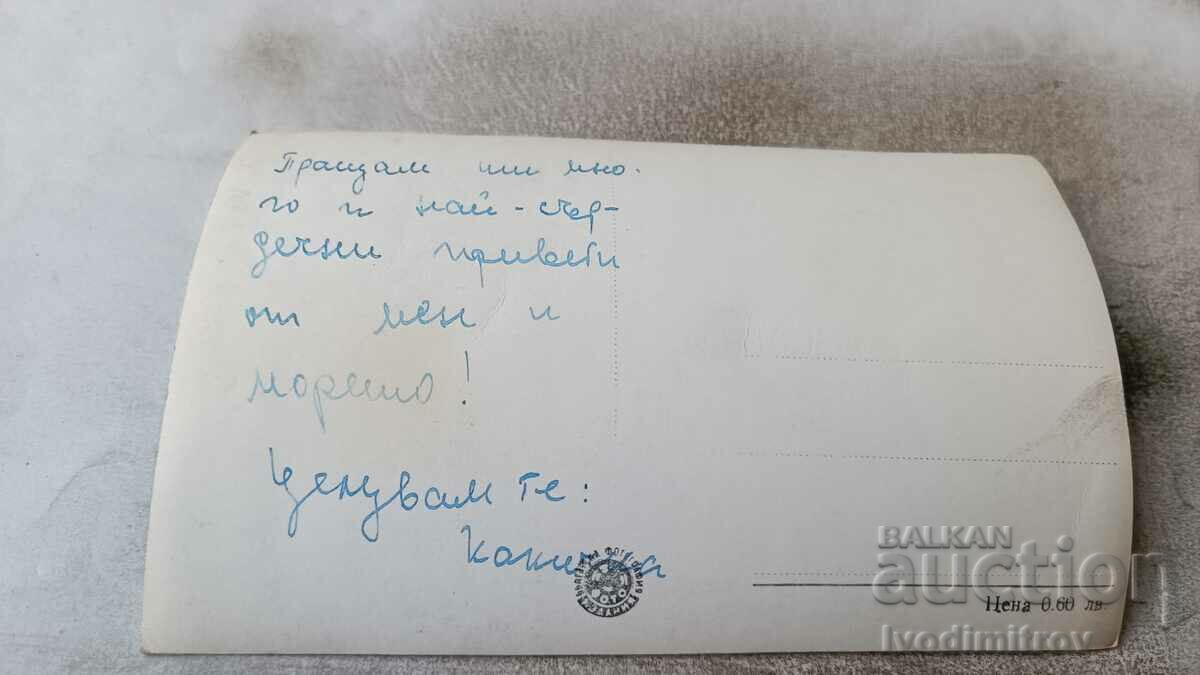 Пращам ти мно.
го и най-сър-
дечни привети
от мен и
морето!
Целувам те:
Какичка
Цена 0.60 лв.
BALKAN
auction
Ivodimitrov